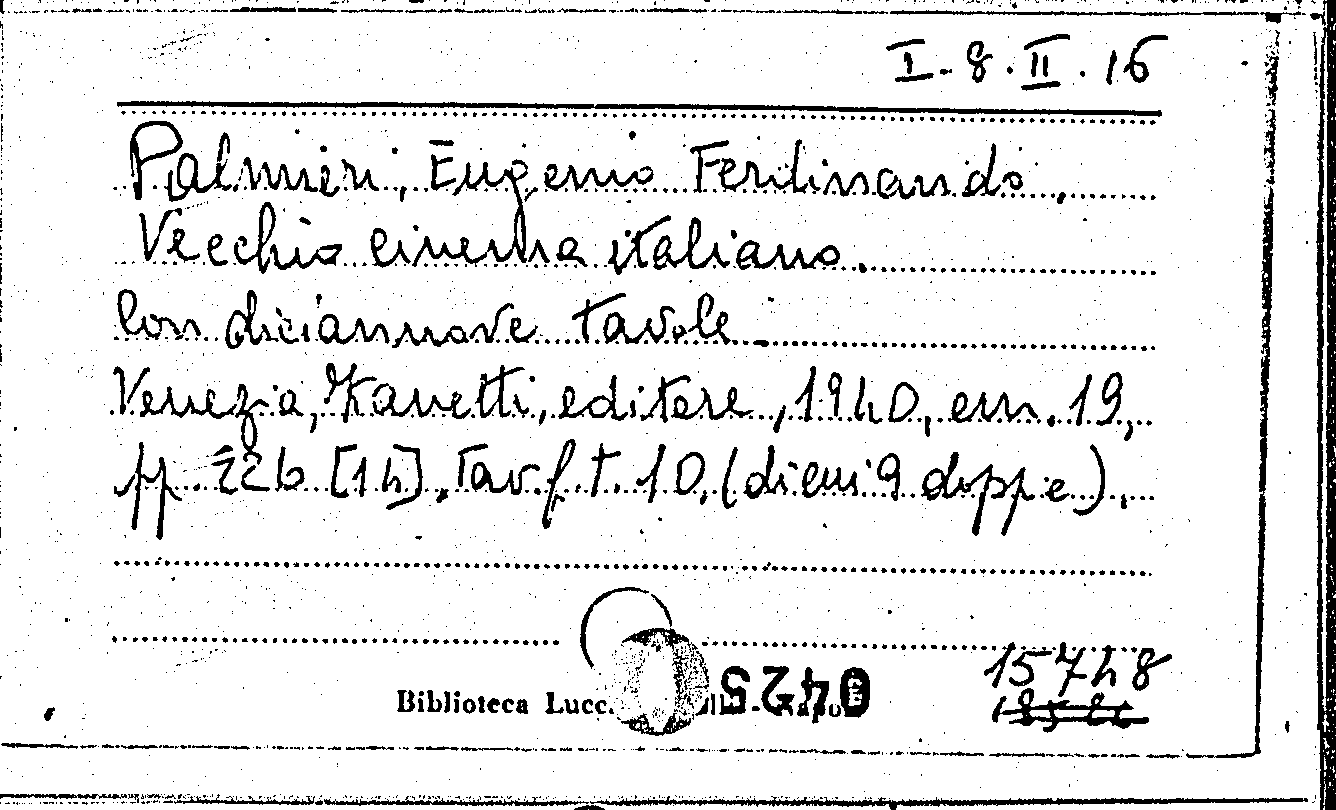 I. 8. II. 16
Palmieri, Eugenio Ferdinando,
Vecchio cinema italiano.
Con diciannove tavole
Venezia, Zanetti, editore, 1940, cm. 19,
pp. 226 [14]. Tav. f. t. 10. (di cui 9 doppie).
15748
Biblioteca Lucc